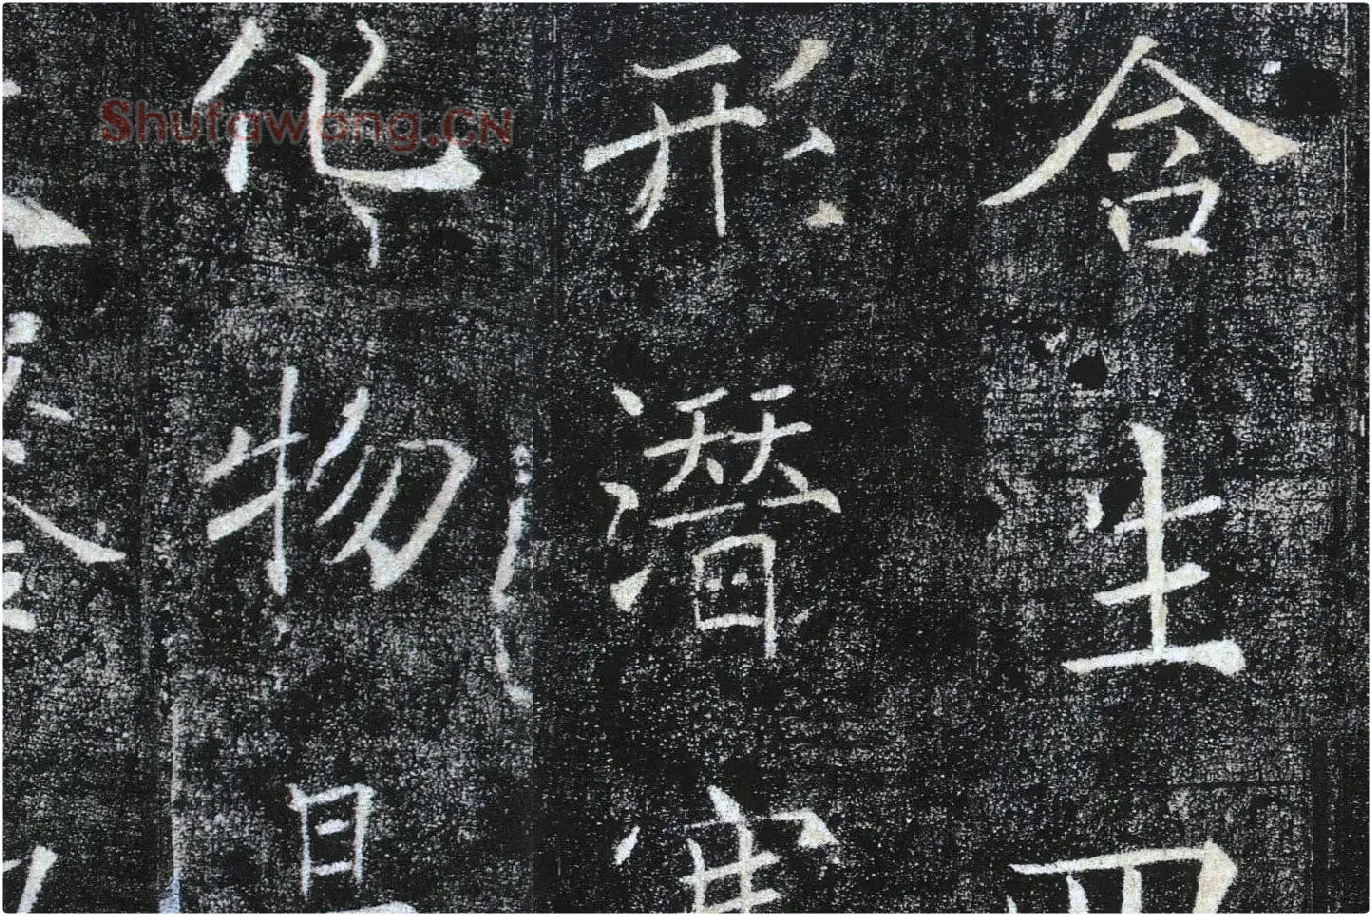 含生四
形潛寒
化物是
Shufawang.CN